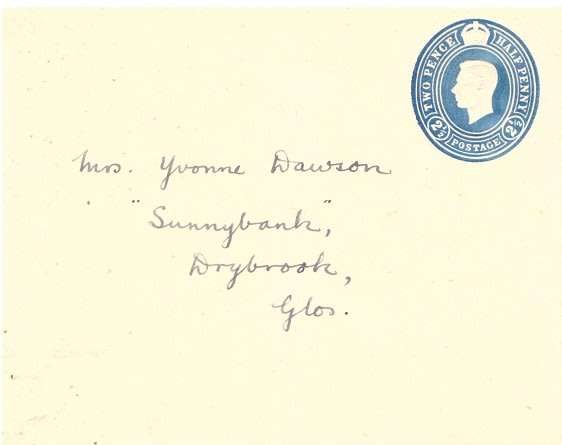 TWO PENCE HALF PENNY
2½ POSTAGE 2½
Mrs. Yvonne Dawson
"Sunnybank",
Drybrook,
Glos.